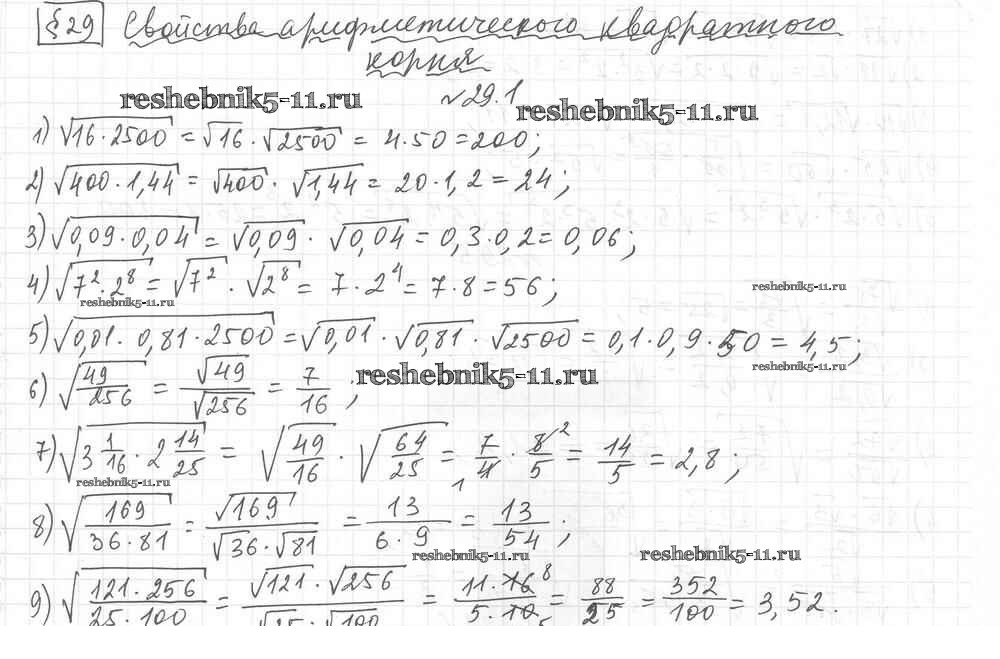 § 29 Свойства арифметического квадратного
корня
reshebnik5-11.ru № 29.1 reshebnik5-11.ru
1) √(16·2500) = √16 · √2500 = 4·50 = 200;
2) √(400·1,44) = √400 · √1,44 = 20·1,2 = 24;
3) √(0,09·0,04) = √0,09 · √0,04 = 0,3·0,2 = 0,06;
4) √(7²·2⁸) = √7² · √2⁸ = 7·2⁴ = 7·8 = 56;
reshebnik5-11.ru reshebnik5-11.ru
5) √(0,01·0,81·2500) = √0,01 · √0,81 · √2500 = 0,1·0,9·50 = 4,5;
reshebnik5-11.ru
6) √(49/256) = √49/√256 = 7/16; reshebnik5-11.ru
7) √(3 1/16 · 2 14/25) = √(49/16) · √(64/25) = 7/4 1 · 8/5 2 = 14/5 = 2,8;
reshebnik5-11.ru
8) √(169/(36·81)) = √169/(√36·√81) = 13/(6·9) = 13/54;
reshebnik5-11.ru reshebnik5-11.ru
9) √((121·256)/(25·100)) = (√121·√256)/(√25·√100) = (11·16 8)/(5·10 5) = 88/25 = 352/100 = 3,52.